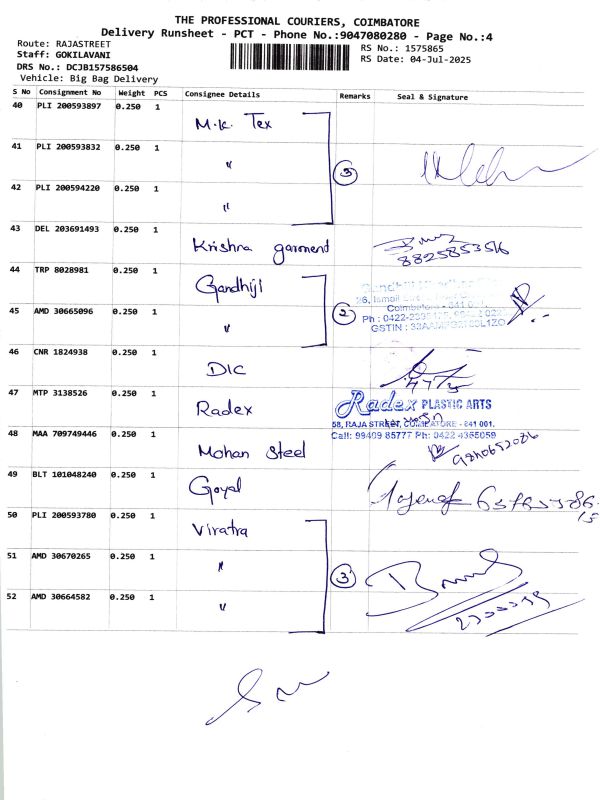 THE PROFESSIONAL COURIERS, COIMBATORE
Delivery Runsheet - PCT - Phone No.:9047080280 - Page No.:4
Route: RAJASTREET
Staff: GOKILAVANI
DRS No.: DCJB157586504
Vehicle: Big Bag Delivery
RS No.: 1575865
RS Date: 04-Jul-2025
S No Consignment No Weight PCS Consignee Details Remarks Seal & Signature
40 PLI 200593897 0.250 1 M.K. Tex
41 PLI 200593832 0.250 1 "
3
42 PLI 200594220 0.250 1 "
43 DEL 203691493 0.250 1 Krishna garment
8825853516
44 TRP 8028981 0.250 1 Gandhiji
45 AMD 30665096 0.250 1 "
2
26, Ismail
Coimbatore - 641 001.
Ph : 0422-
GSTIN :
46 CNR 1824938 0.250 1 DIC
47 MTP 3138526 0.250 1 Radex
Radex PLASTIC ARTS
58, RAJA STREET, COIMBATORE - 641 001.
Call: 99409 85777 Ph: 0422 4365059
48 MAA 709749446 0.250 1 Mohan Steel
49 BLT 101048240 0.250 1 Goyal
50 PLI 200593780 0.250 1 Viratra
51 AMD 30670265 0.250 1 "
3
52 AMD 30664582 0.250 1 "